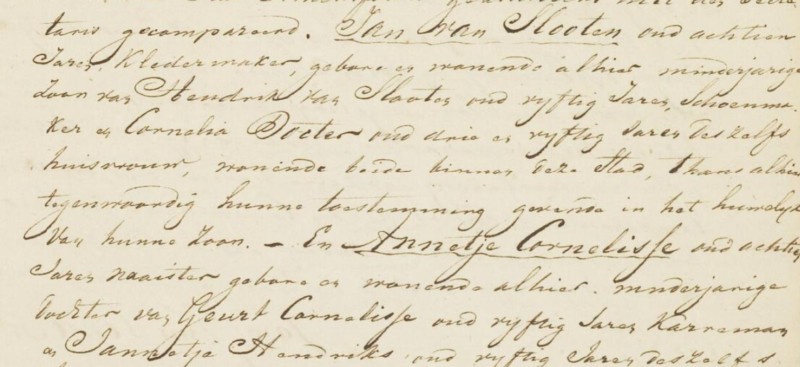 taris gecompareerd. Jan van Slooten oud achtien
Jaren Kledermaker, gebore en wonende alhier minderjarige
Zoon van Hendrik van Slooten oud vyftig Jaren, Schoenma-
ker en Cornelia Docter oud drie en vyftig Jaren deszelfs
huisvrouw, wonende beide binnen deze Stad, thans alhier
tegenwoordig hunne toestemming gevende in het huwelyk
van hunne Zoon. – En Annetje Cornelisse oud achtien
Jaren naaister gebore en wonende alhier. minderjarige
dochter van Geurt Cornelisse oud vyftig Jaren Karreman
en Jannetje Hendriks oud vyftig Jaren deszelfs